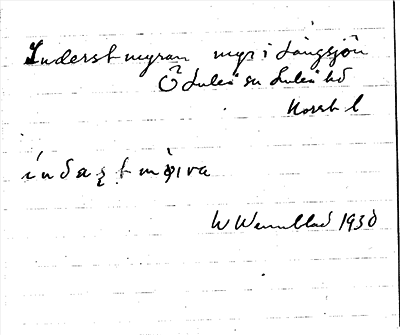 Inderstmyran myr i Långsjön
Ö Luleå sn Luleå hd
Norrb l
índaʂtmỳɪra
W Wennblad 1930